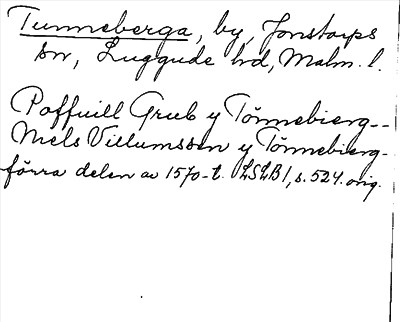 Tunneberga, by, Jonstorps
sn, Luggude hd, Malm. l.
Poffuill Grub y Tönnebierg--
Niels Villumssen y Tönnebierg-
förra delen av 1570-t. LSLB1, s. 524. orig.